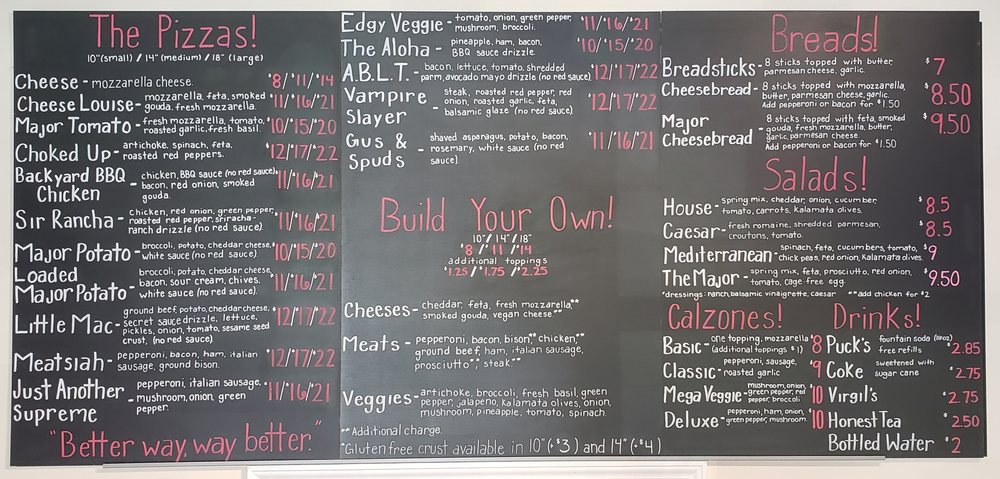 The Pizzas!
10"(small) / 14"(medium) / 18" (large)
Cheese - mozzarella cheese. $8/$11/$14
Cheese Louise - mozzarella, feta, smoked
gouda, fresh mozzarella. $11/$16/$21
Major Tomato - fresh mozzarella, tomato,
roasted garlic, fresh basil. $10/$15/$20
Choked Up - artichoke, spinach, feta,
roasted red peppers. $12/$17/$22
Backyard BBQ
Chicken - chicken, BBQ sauce (no red sauce),
bacon, red onion, smoked
gouda. $11/$16/$21
Sir Rancha - Chicken, red onion, green pepper,
roasted red pepper, sriracha-
ranch drizzle (no red sauce). $11/$16/$21
Major Potato - broccoli, potato, cheddar cheese,
white sauce (no red sauce). $10/$15/$20
Loaded
Major Potato - broccoli, potato, cheddar cheese,
bacon, sour cream, chives.
white sauce (no red sauce). $11/$16/$21
Little Mac - ground beef, potato, cheddar cheese,
secret sauce drizzle, lettuce,
pickles, onion, tomato, sesame seed
crust, (no red sauce). $12/$17/$22
Meatsiah - pepperoni, bacon, ham, italian
sausage, ground bison. $12/$17/$22
Just Another
Supreme - pepperoni, italian sausage,
mushroom, onion, green
pepper. $11/$16/$21
"Better way, way better."
Edgy Veggie - tomato, onion, green pepper,
mushroom, broccoli. $11/$16/$21
The Aloha - pineapple, ham, bacon,
BBQ sauce drizzle. $10/$15/$20
A.B.L.T. - bacon, lettuce, tomato, shredded
parm, avocado mayo drizzle (no red sauce). $12/$17/$22
Vampire
Slayer - steak, roasted red pepper, red
onion, roasted garlic, feta,
balsamic glaze (no red sauce). $12/$17/$22
Gus &
Spuds - shaved asparagus, potato, bacon,
rosemary, white sauce (no red
sauce). $11/$16/$21
Build Your Own!
10"/14"/18"
$8/$11/$14
additional toppings
$1.25/$1.75/$2.25
Cheeses - cheddar, feta, fresh mozzarella**
smoked gouda, vegan cheese**
Meats - pepperoni, bacon, bison,** chicken,**
ground beef, ham, italian sausage,
prosciutto**, steak**
Veggies - artichoke, broccoli, fresh basil, green
pepper, jalapeno, kalamata olives, onion,
mushroom, pineapple, tomato, spinach.
**Additional charge.
*Gluten free crust available in 10" (+$3) and 14" (+$4)
Breads!
Breadsticks - 8 sticks topped with butter,
parmesan cheese, garlic. $7
Cheesebread - 8 sticks topped with mozzarella,
butter, parmesan cheese, garlic.
Add pepperoni or bacon for $1.50 $8.50
Major
Cheesebread - 8 sticks topped with feta, smoked
gouda, fresh mozzarella, butter,
garlic, parmesan cheese.
Add pepperoni or bacon for $1.50 $9.50
Salads!
House - spring mix, cheddar, onion, cucumber,
tomato, carrots, kalamata olives. $8.5
Caesar - fresh romaine, shredded parmesan,
croutons, tomato. $8.5
Mediterranean - spinach, feta, cucumbers, tomato,
chick peas, red onion, Kalamata olives. $9
The Major - spring mix, feta, prosciutto, red onion,
tomato, cage free egg. $9.50
*dressings: ranch, balsamic vinaigrette, caesar **add chicken for $2
Calzones!
Basic - one topping, mozzarella
(additional toppings $1) $8
Classic - pepperoni, sausage,
roasted garlic $9
Mega Veggie - mushroom, onion,
green pepper, red
pepper, broccoli $10
Deluxe - pepperoni, ham, onion,
green pepper, mushroom. $10
Drinks!
Puck's fountain soda (16oz)
free refills $2.85
Coke sweetened with
sugar cane $2.75
Virgil's $2.75
Honest Tea $2.50
Bottled Water $2